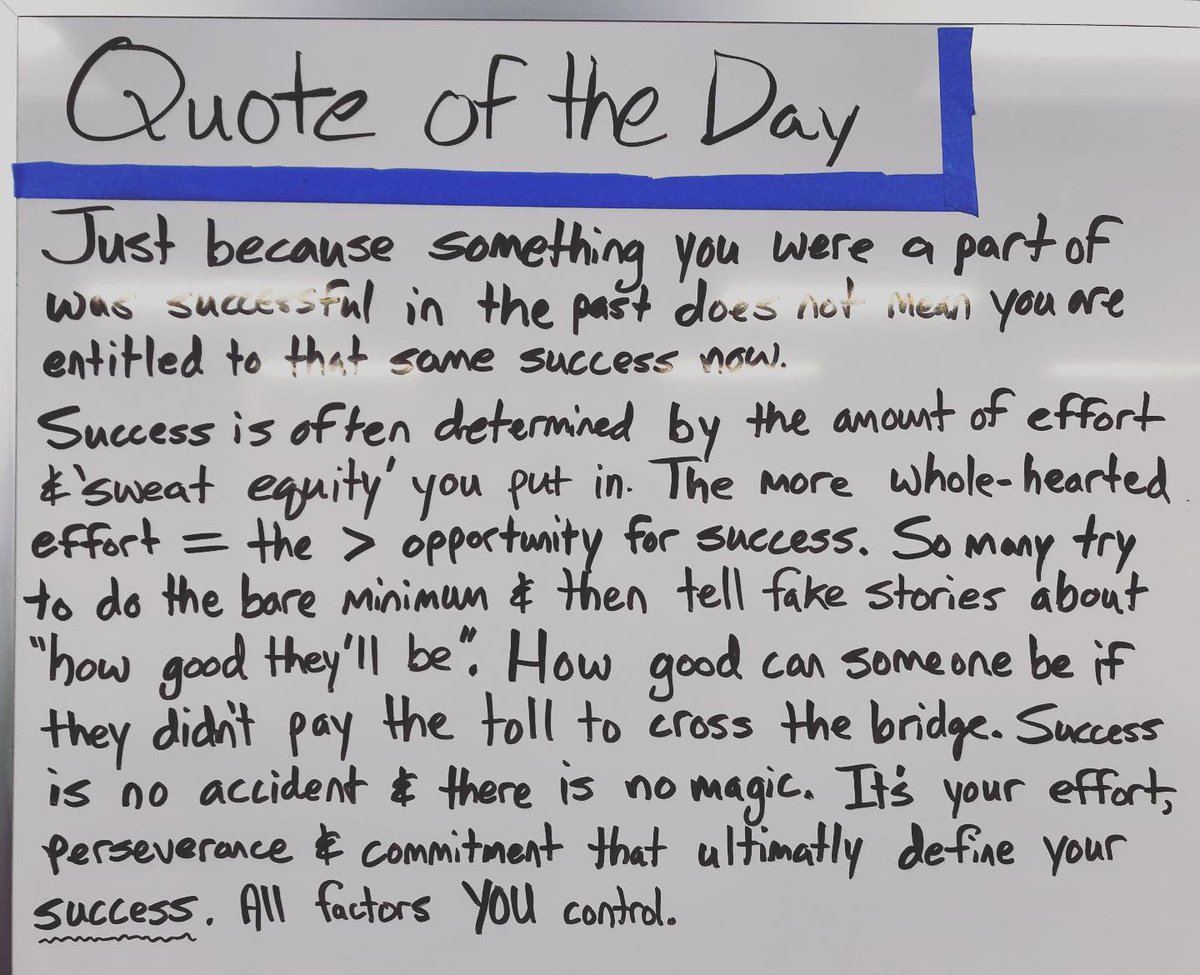 Quote of the Day
Just because something you were a part of
was successful in the past does not mean you are
entitled to that same success now.
Success is often determined by the amount of effort
& 'sweat equity' you put in. The more whole-hearted
effort = the > opportunity for success. So many try
to do the bare minimum & then tell fake stories about
"how good they'll be". How good can someone be if
they didn't pay the toll to cross the bridge. Success
is no accident & there is no magic. It's your effort,
perseverance & commitment that ultimatly define your
success. All factors YOU control.